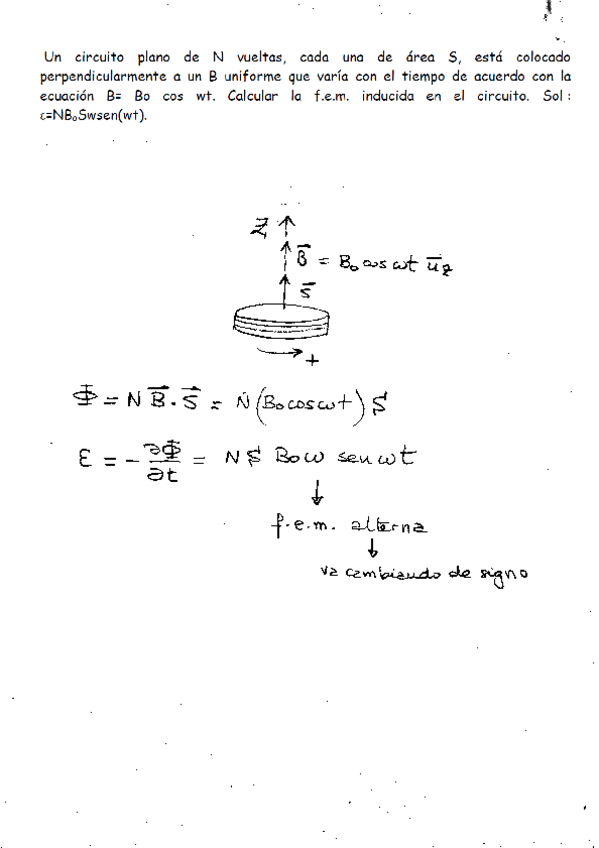 Un circuito plano de N vueltas, cada una de área S, está colocado
perpendicularmente a un B uniforme que varía con el tiempo de acuerdo con la
ecuación B= Bo cos wt. Calcular la f.e.m. inducida en el circuito. Sol :
ε=NBₒSwsen(wt).
Z
B⃗ = B₀ cos ωt u̅z
S⃗
+
Φ = N B⃗ . S⃗ = N (B₀ cos ωt) S
ε = - ∂Φ/∂t = N S B₀ ω sen ωt
↓
f.e.m. alterna
↓
va cambiando de signo